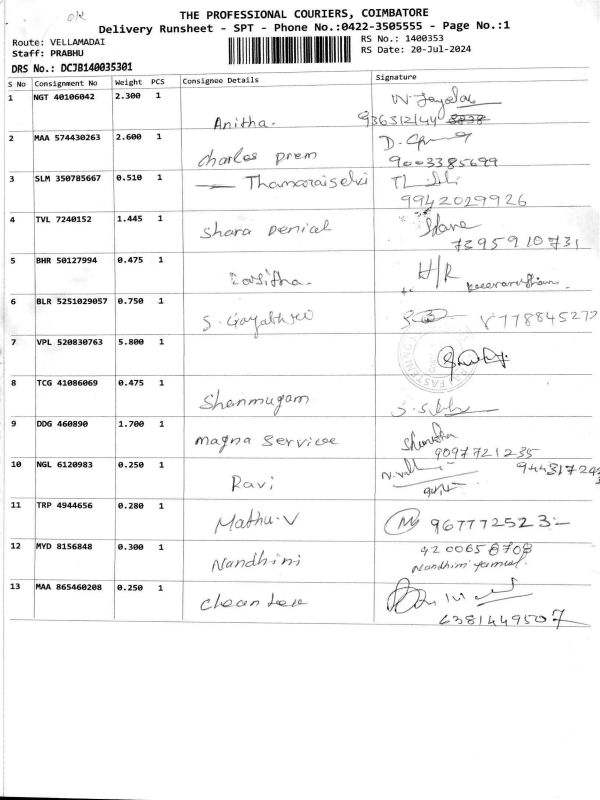 ok
THE PROFESSIONAL COURIERS, COIMBATORE
Delivery Runsheet - SPT - Phone No.:0422-3505555 - Page No.:1
Route: VELLAMADAI
Staff: PRABHU
RS No.: 1400353
RS Date: 20-Jul-2024
DRS No.: DCJB140035301
S No Consignment No Weight PCS Consignee Details Signature
1 NGT 40106042 2.300 1 Anitha.
2 MAA 574430263 2.600 1 Charles prem 9003385699
3 SLM 350785667 0.510 1 Thamaraiselvi 9942029926
4 TVL 7240152 1.445 1 Shara Denial 7395910731
5 BHR 50127994 0.475 1 H/R
6 BLR 5251029057 0.750 1 S. Gayathri
7 VPL 520830763 5.800 1
8 TCG 41086069 0.475 1 Shanmugam
9 DDG 460890 1.700 1 Magna Service 9097721235
10 NGL 6120983 0.250 1 Ravi
11 TRP 4944656 0.280 1 Mathu.V
12 MYD 8156848 0.300 1 Nandhini 4200658708
Nandhini
13 MAA 865460208 0.250 1 6381449507